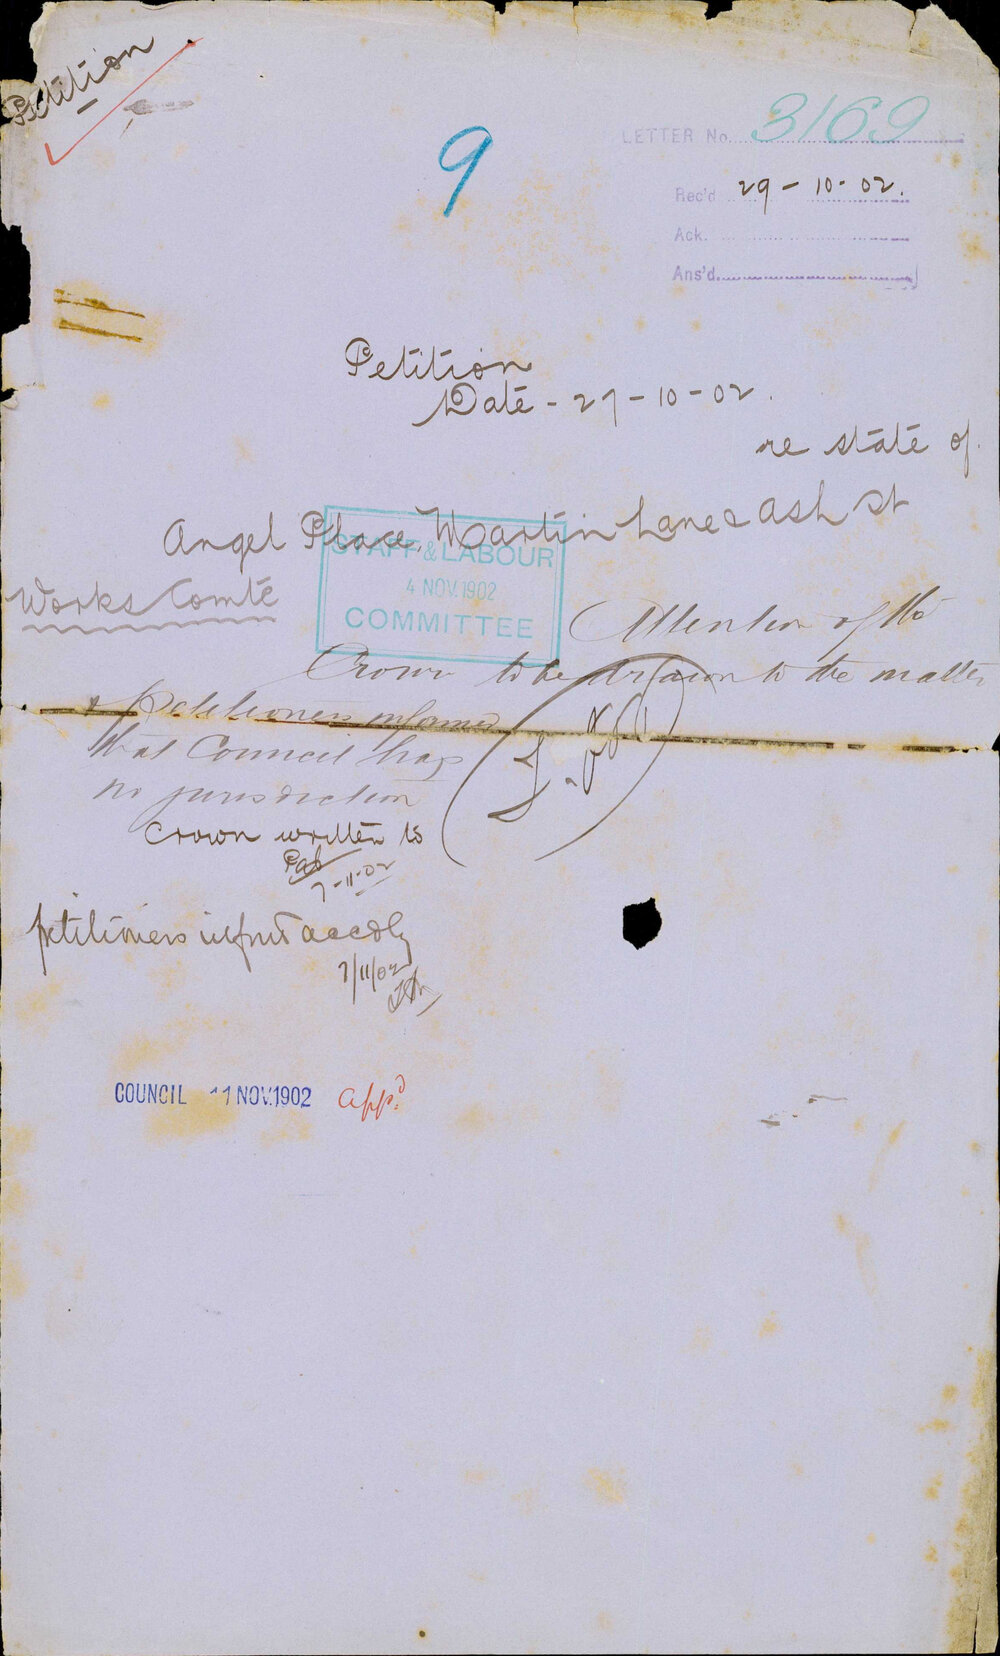 Petition
9
LETTER No. 3169
Rec'd 29-10-02.
Ack.
Ans'd.
Petition
Date - 27-10-02.
re state of
Angel Place, Martin Lane & Ash St
STAFF & LABOUR
4 NOV. 1902
COMMITTEE
Works Comte
Attention of the
Crown to be drawn to the matter
& petitioners informed
that Council has
no jurisdiction
Crown written to
7-11-02
petitioners infmd accdly
7/11/02
COUNCIL 11 NOV. 1902 appd.